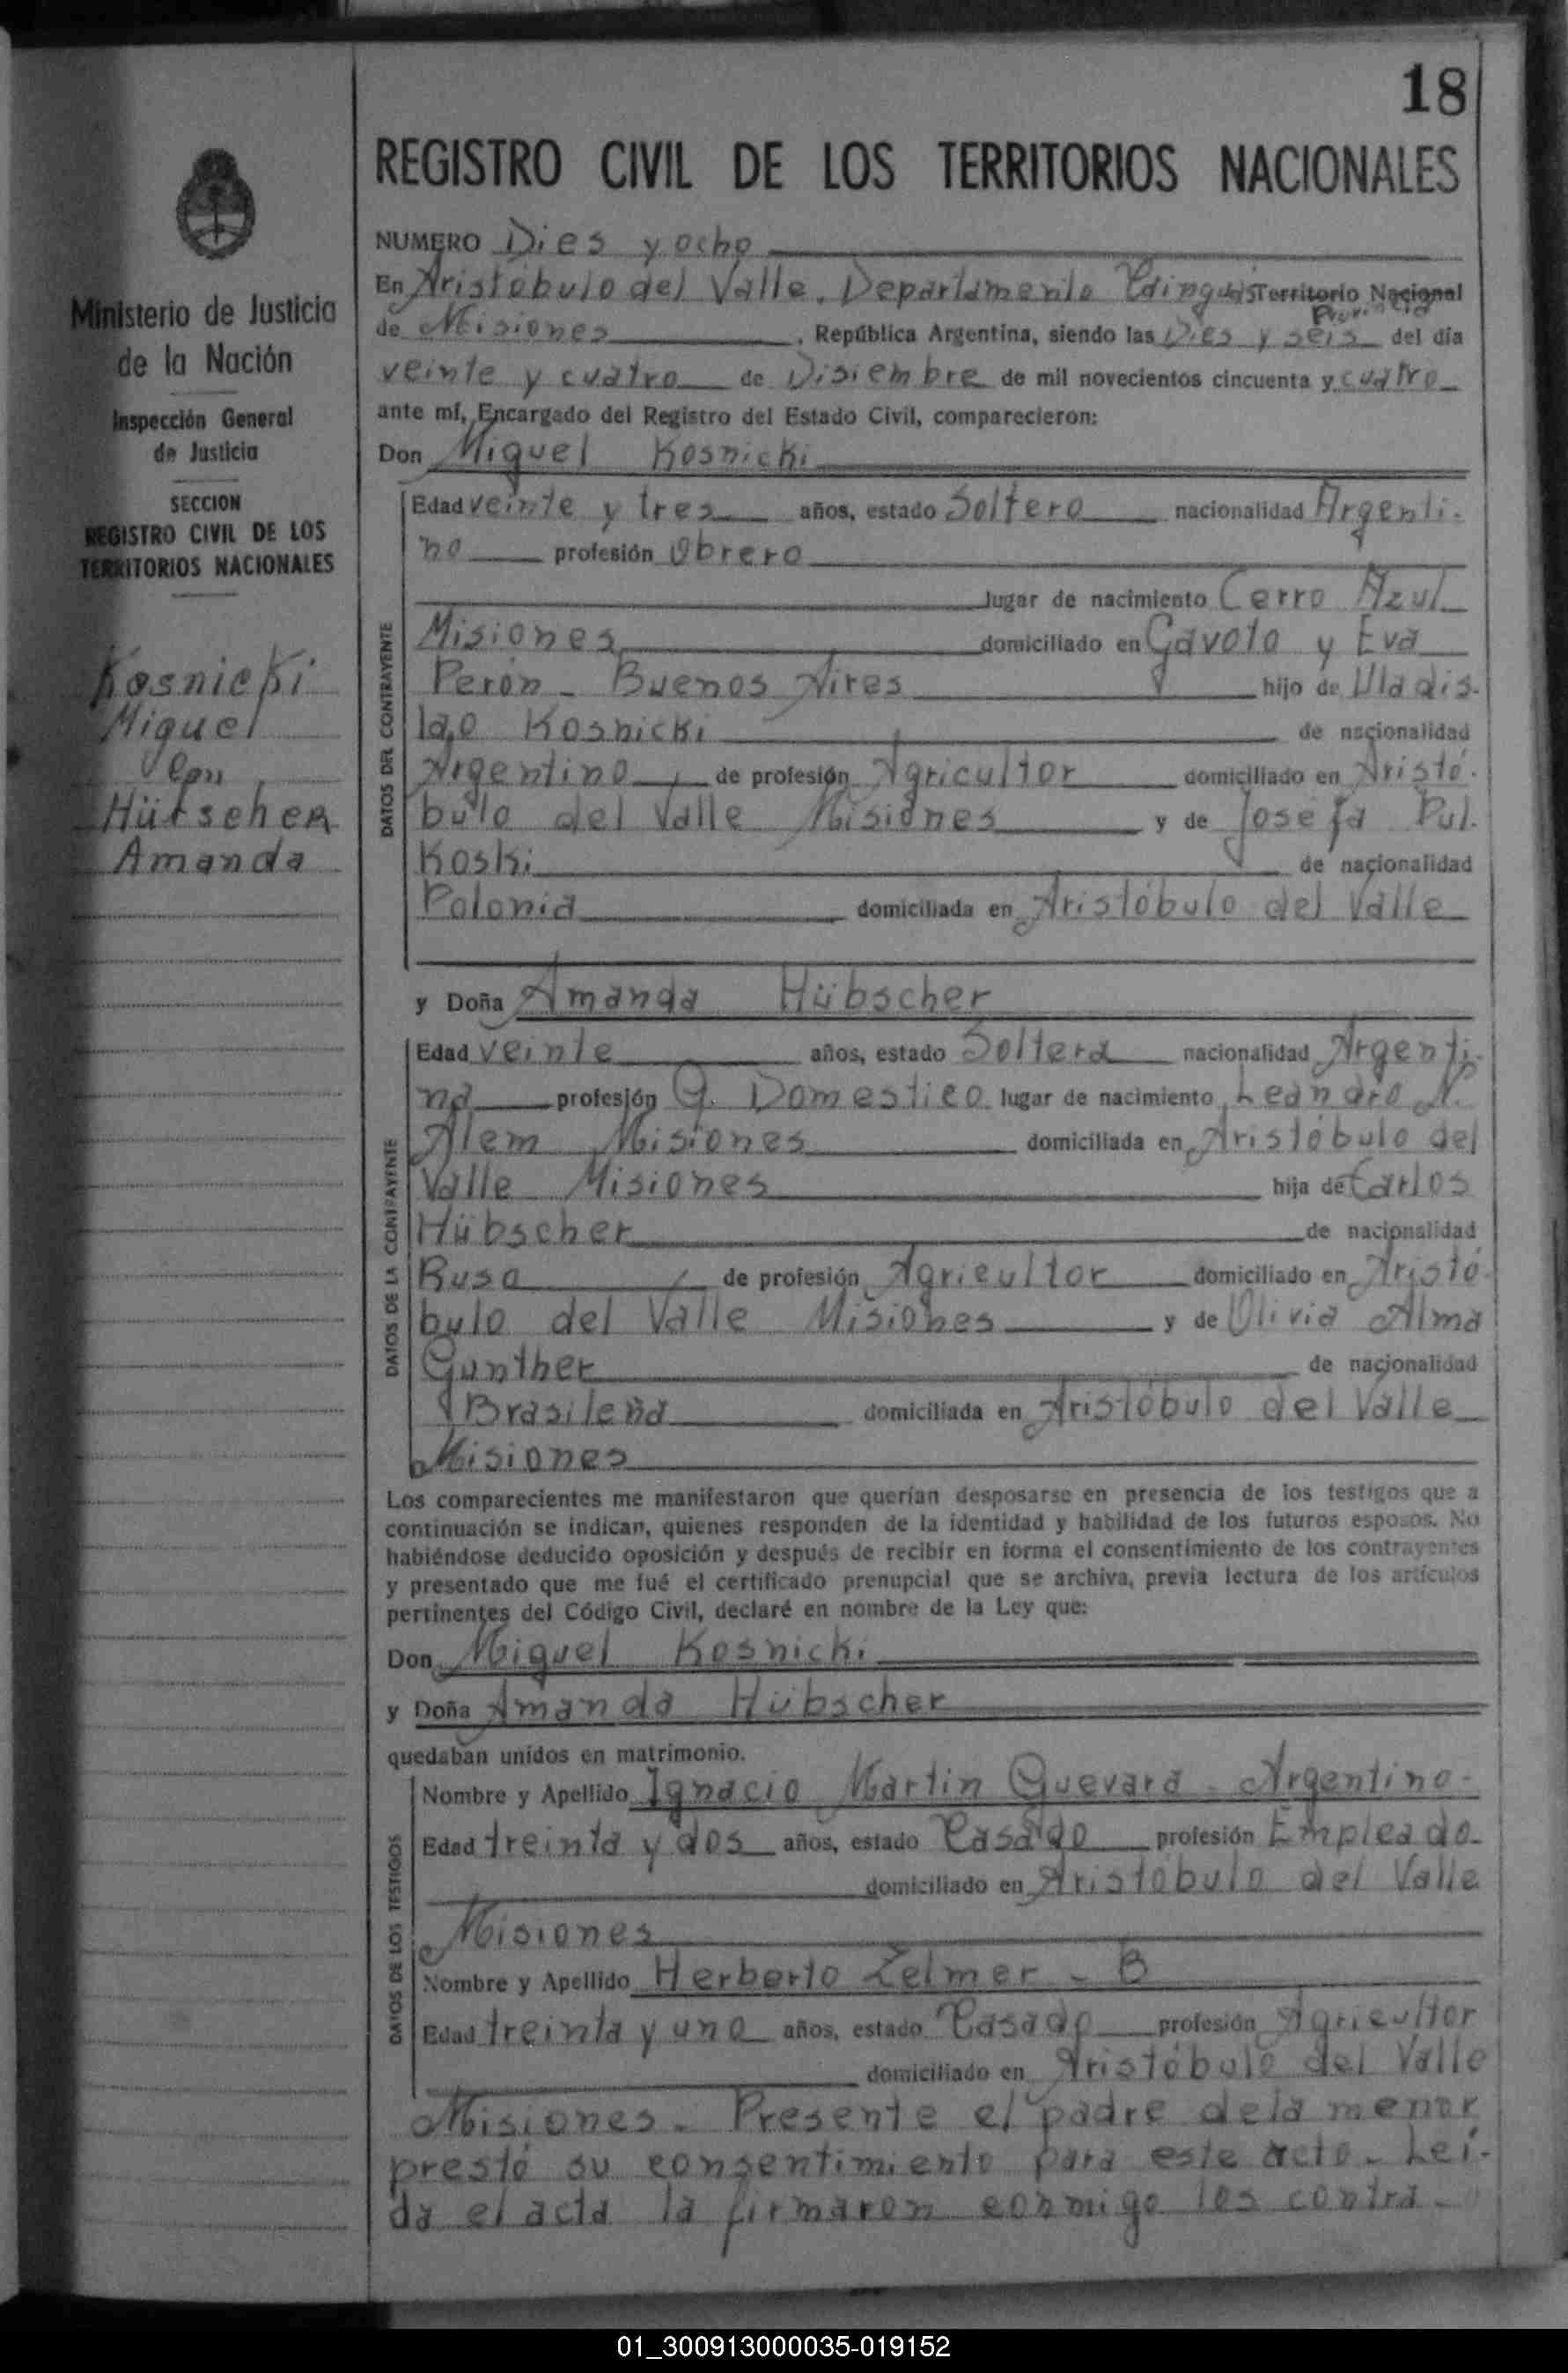 18
REGISTRO CIVIL DE LOS TERRITORIOS NACIONALES
Ministerio de Justicia
de la Nación
Inspección General
de Justicia
SECCION
REGISTRO CIVIL DE LOS
TERRITORIOS NACIONALES
Kosnicki
Miguel
con
Hütscher
Amanda
NUMERO Dies y ocho
En Aristóbulo del Valle, Departamento Cainguás Territorio Nacional
Provincia
de Misiones, República Argentina, siendo las Dies y seis del día
veinte y cuatro de Disiembre de mil novecientos cincuenta y cuatro
ante mí, Encargado del Registro del Estado Civil, comparecieron:
Don Miguel Kosnicki
DATOS DEL CONTRAYENTE
Edad veinte y tres años, estado Soltero nacionalidad Argenti-
no profesión Obrero
lugar de nacimiento Cerro Azul
Misiones domiciliado en Gavoto y Eva
Perón - Buenos Aires hijo de Uladis-
lao Kosnicki de nacionalidad
Argentino, de profesión Agricultor domiciliado en Aristó-
bulo del Valle Misiones y de Josefa Pul-
Koski de nacionalidad
Polonia domiciliada en Aristóbulo del Valle
y Doña Amanda Hübscher
DATOS DE LA CONTRAYENTE
Edad veinte años, estado Soltera nacionalidad Argenti-
na profesión Q. Domestico lugar de nacimiento Leandro N.
Alem Misiones domiciliada en Aristóbulo del
Valle Misiones hija de Carlos
Hübscher de nacionalidad
Ruso, de profesión Agricultor domiciliado en Aristó-
bulo del Valle Misiones y de Olivia Alma
Gunther de nacionalidad
Brasileña domiciliada en Aristóbulo del Valle
Misiones
Los comparecientes me manifestaron que querían desposarse en presencia de los testigos que a
continuación se indican, quienes responden de la identidad y habilidad de los futuros esposos. No
habiéndose deducido oposición y después de recibir en forma el consentimiento de los contrayentes
y presentado que me fué el certificado prenupcial que se archiva, previa lectura de los artículos
pertinentes del Código Civil, declaré en nombre de la Ley que:
Don Miguel Kosnicki
y Doña Amanda Hübscher
quedaban unidos en matrimonio.
DATOS DE LOS TESTIGOS
Nombre y Apellido Ignacio Martin Guevara - Argentino-
Edad treinta y dos años, estado Casado profesión Empleado-
domiciliado en Aristobulo del Valle
Misiones
Nombre y Apellido Herberto Zelmer - B
Edad treinta y uno años, estado Casado profesión Agricultor
domiciliado en Aristóbulo del Valle
Misiones - Presente el padre dela menor
prestó su consentimiento para este acto - Leí-
da el acta la firmaron conmigo los contra-
01_300913000035-019152